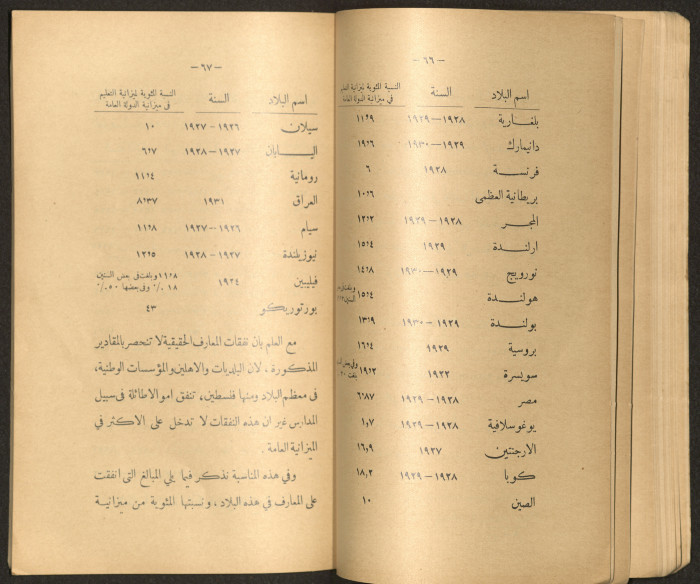 — ٦٦ —
اسم البلاد السنة النسبة المئوية لميزانية التعليم
في ميزانية الدولة العامة
بلغارية ١٩٢٨—١٩٢٩ ١١٫٩
دانيمارك ١٩٢٩—١٩٣٠ ١٩٫٦
فرنسة ١٩٢٨ ٦
بريطانية العظمى ١٠٫٦
المجر ١٩٢٨—١٩٢٩ ١٢٫٢
ارلندة ١٩٢٩ ١٥٫٤
نورويج ١٩٢٩—١٩٣٠ ١٤٫٨
هولندة ١٥٫٤
بولندة ١٩٢٩—١٩٣٠ ١٣٫٩
بروسية ١٩٢٩ ١٦٫٤
سويسرة ١٩٢٢ ١٩٫٢
مصر ١٩٢٨—١٩٢٩ ٦٫٨٧
يوغوسلافية ١٩٢٨—١٩٢٩ ١٫٧
الارجنتين ١٩٢٧ ١٦٫٩
كوبا ١٩٢٨—١٩٢٩ ١٨٫٢
الصين ١٠
— ٦٧ —
اسم البلاد السنة النسبة المئوية لميزانية التعليم
في ميزانية الدولة العامة
سيلان ١٩٢٦—١٩٢٧ ١٠
اليابان ١٩٢٧—١٩٢٨ ٦٫٧
رومانية ١١٫٤
العراق ١٩٣١ ٨٫٣٧
سيام ١٩٢٦—١٩٢٧ ١١٫٨
نيوزيلندة ١٩٢٧—١٩٢٨ ١٢٫٥
فيليبين ١٩٢٤ ١١٫٨ وبلغت في بعض السنين
١٨ ٪ وفي بعضها ٥٠ ٪
بورتوريكو ٤٣
مع العلم بان نفقات المعارف الحقيقية لا تنحصر بالمقادير
المذكورة . لان البلديات والاهلين والمؤسسات الوطنية،
في معظم البلاد ومنها فلسطين، تنفق اموالا طائلة في سبيل
المدارس غير ان هذه النفقات لا تدخل على الاكثر في
الميزانية العامة .
وفي هذه المناسبة نذكر فيما يلي المبالغ التي انفقت
على المعارف في هذه البلاد ، ونسبتها المئوية من ميزانية